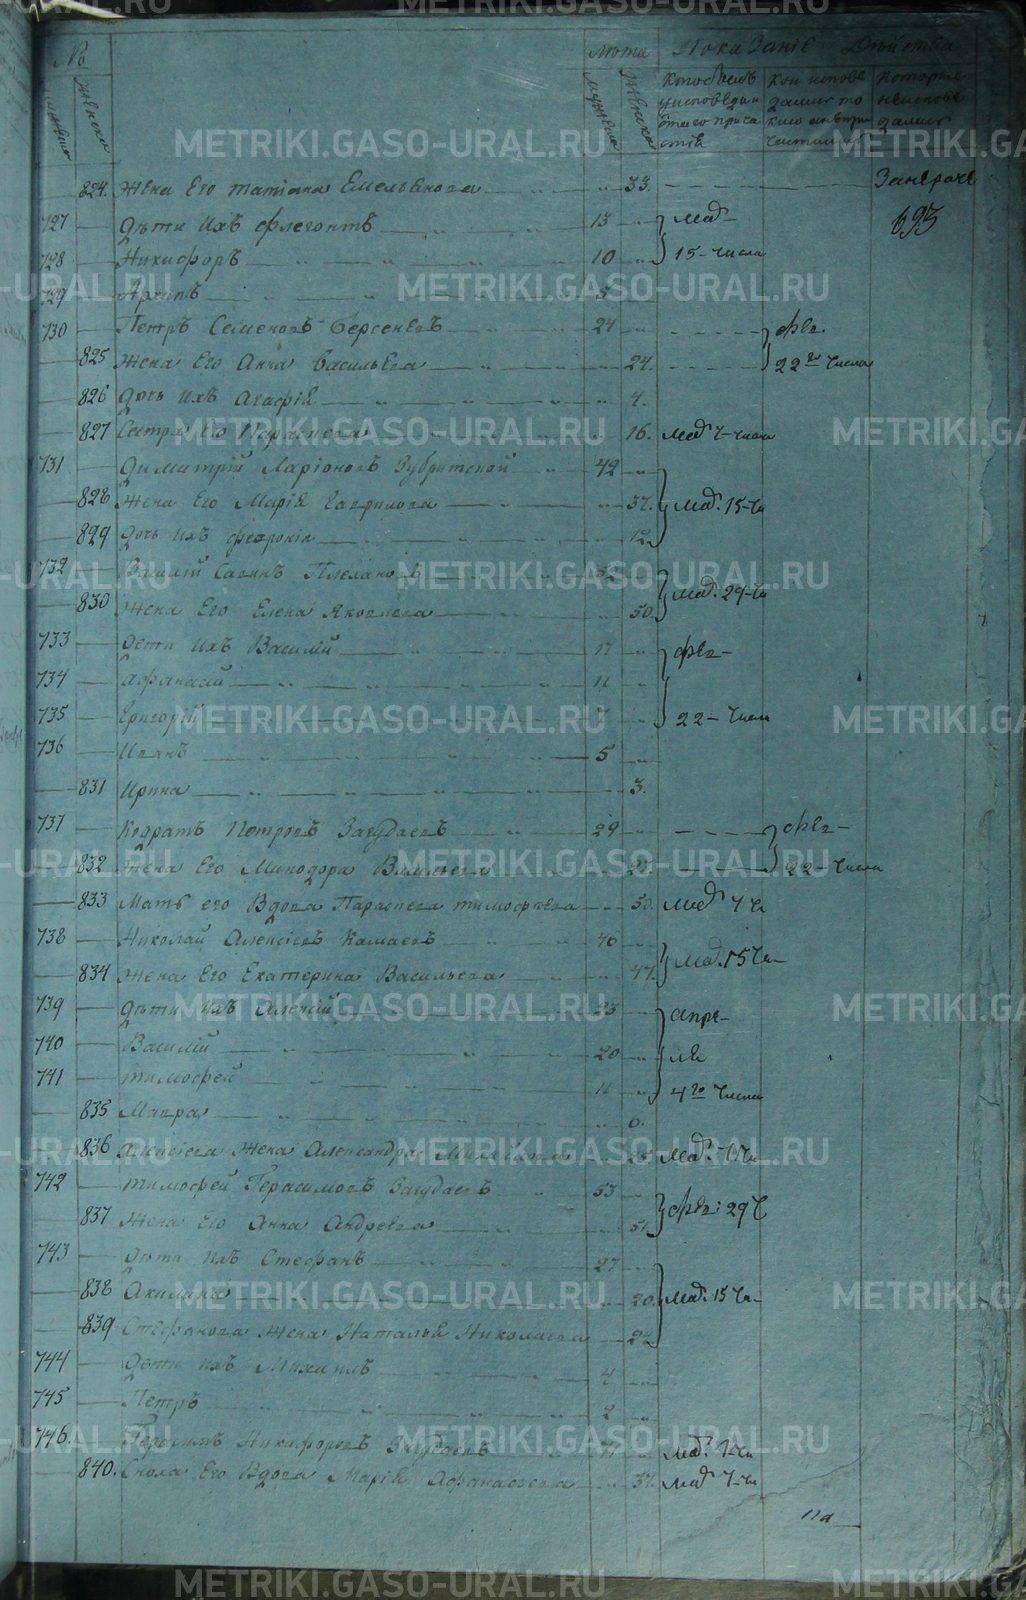 METRIKI.GASO-URAL.RU
№ Лѣта Показаніе Действа
Мужеска Женска Мужеска Женска
Кто былъ у исповеди и с̃таго причастія
Кои исповедались токмо а не причастились
Которые не исповедались
824. Жена Его Татіана Емельянова — 33. За нерач
727 Дѣти Ихъ Флегонтъ 13 Мар 693
728 Никифоръ 10 15 числа
729 Архипъ 5
730 Петръ Семеновъ Берсеневъ 24 Фев.
825 Жена Его Анна Васильева 24. 22го числа
826 Дочь Ихъ Агафія 4.
827 Сестра Его Параскева 16. Мар 7 числа
731 Димитрій Ларіоновъ Зубритской 42
828 Жена Его Марія Гаврилова 37. Мар. 15 Чи
829 Дочь Ихъ Февронія 12.
732 Василій Савинъ 52
830 Жена Его Елена Яковлева 50. Мар. 29 Чи
733 Дети Ихъ Василій 17 Фев
734 Афанасій 11
735 Григорій 7 22 Числа
736 Иванъ 5
831 Ирина 3.
737 Кодратъ Петровъ Загудаевъ 29 Фев
832 Жена Его Минодора Васильева 22 Числа
833 Мать его Вдова Параскева Тимофѣева 50. Мар 7 Чи
738 Николай Алексіевъ Камаевъ 46
834 Жена Его Екатерина Васильева 47. Мар. 15 Чи
739 Дѣти Ихъ Алексій 23 Апре
740 Василій 20 ля
741 Тимофей 11 4го Числа
835 Мавра 0.
836 Алексіева Жена Александра 25 Мар. 7 Чи
742 Тимофей Герасимовъ Загудаевъ 53
837 Жена Его Анна Андреева 51. Фев: 29 Ч
743 Дѣти Ихъ Стефанъ 27
838 Акилина 20 Мар. 15 Чи
839 Стефанова Жена Наталья Николаева 24
744 Дѣти ихъ Михаилъ 4
745 Петръ 2
746. Герасимъ Никифоровъ Загудаевъ Мар. 7 Чи
840. Сноха Его Вдова Марія Афанасьева 37. Мар 7 Чи